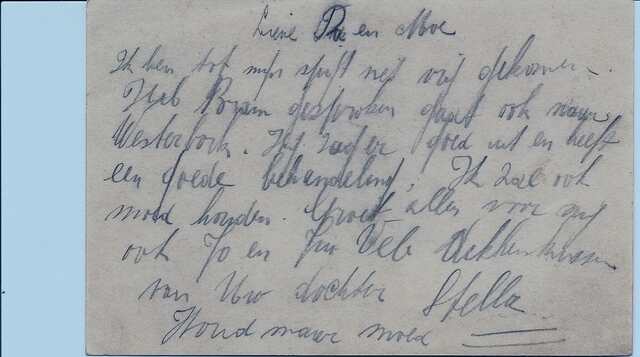 Lieve Pa en Moe
Ik ben tot mijn spijt niet vrij gekomen.
Heb Bram gesproken gaat ook naar
Westerbork. Hij zag er goed uit en heeft
een goede behandeling. Ik zal ook
moed houden. Groet alles voor mij
ook Jo en Vele
van Uw dochter Stella
Houd maar moed